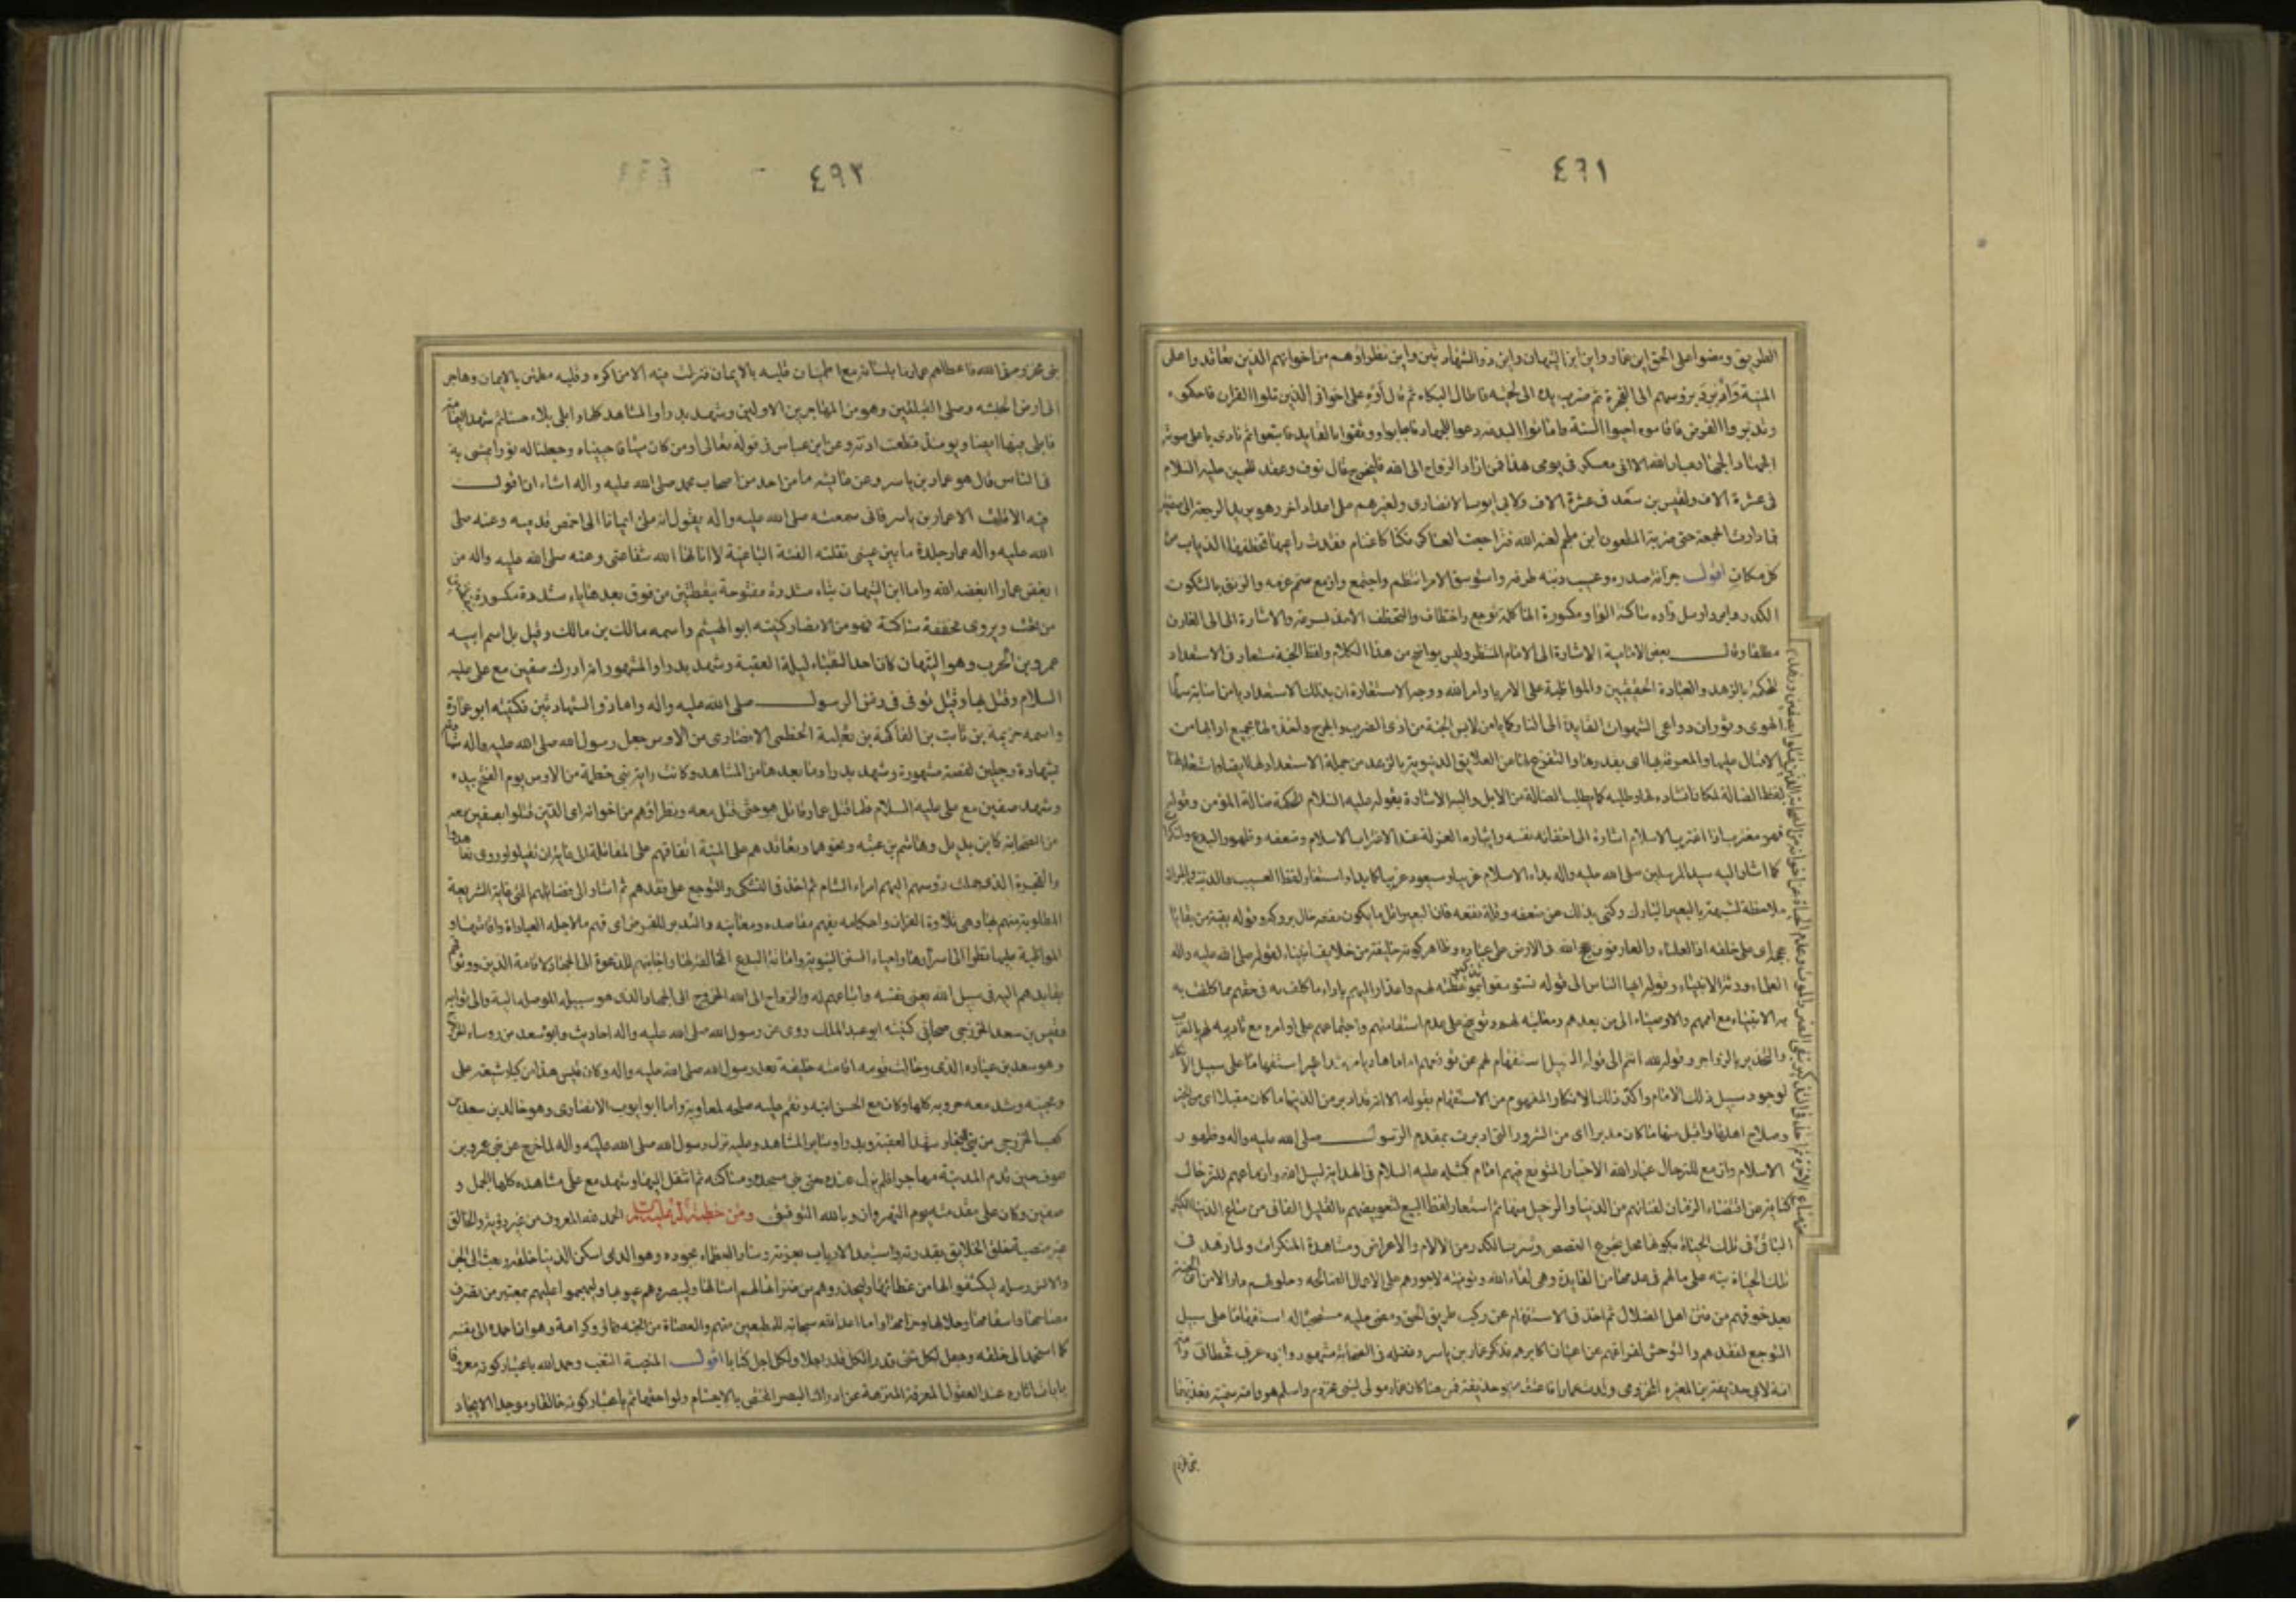 ٤٦١
الطريق ومضوا على الحق اين عمار واين ابن التيهان واين ذو الشهادتين واين نظراؤهم من اخوانهم الذين تعاقدوا على
المنية وابرد برؤسهم الى الفجرة ثم ضرب يده الى لحيته فاطال البكاء ثم قال اوه على اخوانى الذين تلوا القران فاحكموه
وتدبروا الفرض فاقاموه احيوا السنة واماتوا البدعة دعوا للجهاد فاجابوا ووثقوا بالقايد فاتبعوا ثم نادى باعلى صوته
الجهاد الجهاد عباد الله الا وانى معسكر فى يومى هذا فمن اراد الرواح الى الله فليخرج قال نوف وعقد للحسين عليه السلام
فى عشرة الاف ولقيس بن سعد فى عشرة الاف ولابى ايوب الانصارى ولغيرهم على اعداد اخر وهو يريد الرجعة الى صفين
فما دارت الجمعة حتى ضربه الملعون ابن ملجم لعنه الله فتراجعت العساكر فكنا كاغنام فقدت راعيها تختطفها الذياب من
كل مكان اقول
مطلقا وقالـــت بعض الامامية الاشارة الى الامام المنتظر وليس بواضح من هذا الكلام ولفظ الجنة مستعار فى الاستعداد
للحكمة بالزهد والعبادة الحقيقيين والمواظبة على الامر باوامر الله ووجه الاستعارة ان بذلك الاستعداد يامن اصابة سهام
الهوى وثوران دواعى الشهوات القايدة الى النار كما يامن لابس الجنة من اذى الضرب والجرح واخذه لها بجميع ادابها من
الاقبال عليها والمعرفة بها اى بقدرها والتفرغ لها من العلايق الدنيوية بالزهد من جملة الاستعداد لها ايضا واستعار لها
لفظ الضالة لمكان انشاده لها وطلبه كما يطلب الضالة من الابل واليه الاشارة بقوله عليه السلام الحكمة ضالة المؤمن وقوله
فهو مغترب اذا اغترب الاسلام اشارة الى اخفائه نفسه وايثاره العزلة عند اغتراب الاسلام وضعفه وظهور البدع
كما اشار اليه سيد المرسلين صلى الله عليه واله بداء الاسلام غريبا وسيعود غريبا كما بدا واستعار لفظ العسيب والذنب
ملاحظة لشبهه بالبعير البارك وكنى بذلك عن ضعفه وقلة نفعه فان البعير اقل ما يكون نفعه حال بروكه وقوله بقية من بقايا
حججه اى على خلقه اذ العلماء والعارفون حجج الله فى الارض على عباده وظاهر كونه خليفة من خلايف انبيائه لقوله صلى الله عليه واله
العلماء ورثة الانبياء وقوله ايها الناس الى قوله تستوسقوا
به الانبياء مع اممهم والاوصياء الى من بعدهم ومعاتبة لهم وتوبيخ على عدم استقامتهم واجتماعهم على اوامره مع تاديبه لهم
والتحذير بالزواجر وقوله لله انتم الى قوله السبيل استفهام لهم عن توقعهم اماما هاديا مرشدا غيره استفهاما على سبيل الانكار
لوجود سبيل ذلك الامام واكد ذلك الانكار المفهوم من الاستفهام بقوله الا انه قد ادبر من الدنيا ما كان مقبلا اى من الخير
وصلاح اهلها واقبل منها ما كان مدبرا اى من الشرور التى ادبرت بمقدم الرسولـــ صلى الله عليه واله وظهور
الاسلام وازمع للترحال عباد الله الاخيار
كناية عن اقتضاء الزمان لفنائهم من الدنيا والرحيل منها ثم استعار لفظ البيع لتعويضهم بالقليل الفانى من متاع الدنيا الكثير
الباقى فى تلك الحياة بكونها محل تجرع الغصص وشرب الكدر من الالام والاعراض ومشاهدة المنكرات
بعد خوفهم من فتن اهل الضلال ثم اخذ فى الاستفهام عن ركب طريق الحق ومضى عليه
التوجع لفقدهم والتوحش لفراقهم عن اعيان اكابرهم فذكر عمار بن ياسر وفضله فى الصحابة مشهور وابوه عربى قحطانى وامه
بنى مخزوم

٤٩٢
بنى مخزوم فى الله فاعطاهم عمار بلسانه مع اطمينان قلبه بالايمان فنزلت فيه الا من اكره وقلبه مطمئن بالايمان وهاجر
الى ارض الحبشه وصلى القبلتين وهو من المهاجرين الاولين وشهد بدرا والمشاهد كلها وابلى بلاء حسنا ثم شهد اليمامة
فابلى فيها ايضا ويومئذ قطعت اذنه وعن ابن عباس فى قوله تعالى اومن كان ميتا فاحييناه وجعلنا له نورا يمشى به
فى الناس قال هو عمار بن ياسر وعن عائشه ما من احد من اصحاب محمد صلى الله عليه واله اشاء ان اقولـــ
فيه الا قلت الا عمار بن ياسر فانى سمعته صلى الله عليه واله يقول انه ملئ ايمانا الى اخمص قدميه وعنه صلى
الله عليه واله عمار جلدة ما بين عينى تقتله الفئة الباغية لا انالها الله شفاعتى وعنه صلى الله عليه واله من
ابغض عمارا ابغضه الله واما ابن التيهان بتاء مشددة مفتوحة بنقطتين من فوق بعدها ياء مشددة مكسورة
من تحت ويروى مخففة ساكنة فهو من الانصار كنيته ابو الهيثم واسمه مالك بن مالك وقيل بل اسم ابيه
عمرو بن الحرث وهو التيهان كان احد النقباء ليلة العقبة وشهد بدرا والمشهور انه ادرك صفين مع على عليه
السلام وقتل بها وقيل توفى فى زمن الرسولـــ صلى الله عليه واله واما ذو الشهادتين فكنيته ابو عمارة
واسمه خزيمة بن ثابت بن الفاكهة بن ثعلبة الخطمى الانصارى من الاوس جعل رسول الله صلى الله عليه واله شهادته
بشهادة رجلين لقصة مشهورة وشهد بدرا وما بعدها من المشاهد وكانت راية بنى خطمة من الاوس يوم الفتح بيده
وشهد صفين مع على عليه السلام فلما قتل عمار قاتل هو حتى قتل معه ونظراؤهم من اخوانه اى الذين قتلوا بصفين معه
من الصحابة كابن بديل وهاشم بن عتبه ونحوهما وتعاقدهم على المنية اتفاقهم على المقاتلة الى غاية ان يقتلوا وروى تعاهدوا
والفجرة الذى حملت رؤسهم اليهم امراء الشام ثم اخذ فى التشكى والتوجع على فقدهم ثم اشار الى فضائلهم التى غاية الشريعة
المطلوبة منهم هنا وهى تلاوة القران واحكامه بفهم مقاصده ومعانيه والتدبر للفرض اى فهم ما لاجله العبادات واقامتها و
المواظبة عليها نظرا الى اسرارها واحياء السنن النبوية واماتة البدع المخالفة لها واجابتهم للدعوة الى الجهاد لاقامة الدين ووثوقهم
بقايدهم اليه فى سبيل الله يعنى نفسه واتباعهم له والرواح الى الله الخروج الى الجهاد الذى هو سبيله الموصله اليه والى ثوابه
وقيس بن سعد الخزرجى صحابى كنيته ابو عبد الملك روى عن رسول الله صلى الله عليه واله احاديث وابوه سعد من رؤساء الخزرج
وهو سعد بن عباده الذى
ومحبيه وشهد معه حروبه كلها وكان مع الحسن ابنه ونقم عليه صلحه لمعاوية واما ابو ايوب الانصارى وهو خالد بن سعد بن
كعب الخزرجى من بنى النجار شهد العقبة وبدرا وساير المشاهد وعليه نزل رسول الله صلى الله عليه واله لما خرج عن بنى عمرو بن
عوف حين قدم المدينة مهاجرا فلم يزل عنده حتى بنى مسجده ومساكنه ثم انتقل اليها وشهد مع على مشاهده كلها الجمل و
صفين وكان على مقدمته يوم النهروان وبالله التوفيق ومن خطبة له عليه السلام الحمد لله المعروف من غير رؤية والخالق
من غير منصبة خلق الخلايق بقدرته واستعبد الارباب بعزته وساد العظماء بجوده وهو الذى اسكن الدنيا خلقه وبعث الى الجن
والانس رسله ليكشفوا لهم عن غطائها وليحذروهم من ضرائها وليضربوا لهم امثالها وليبصروهم عيوبها وليهجموا عليهم بمعتبر من تصرف
مصاحها واسقامها وحلالها وحرامها وما اعد الله سبحانه للمطيعين منهم والعصاة من جنة ونار وكرامة وهوان احمده الى نفسه
كما استحمد الى خلقه وجعل لكل شئ قدرا ولكل قدر اجلا ولكل اجل كتابا اقولـــ المنصبة التعب وحمد الله باعتبار كونه معروفا